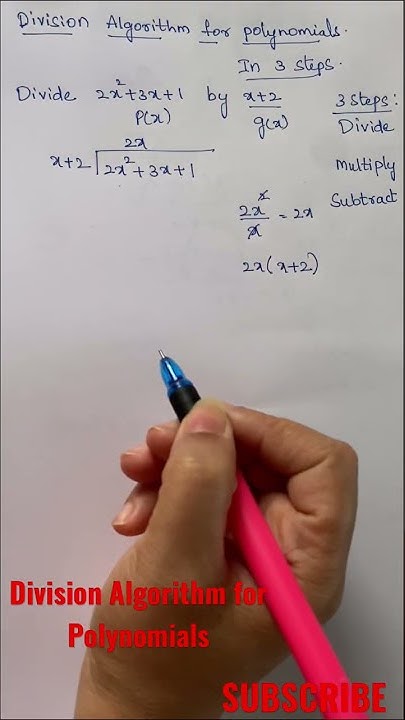 Division Algorithm for polynomials.
In 3 steps.
Divide 2x²+3x+1 by x+2
P(x) g(x)
3 steps:
Divide
multiply
Subtract
2x
x+2 2x²+3x+1
2x²/x = 2x
2x(x+2)
Division Algorithm for
Polynomials
SUBSCRIBE